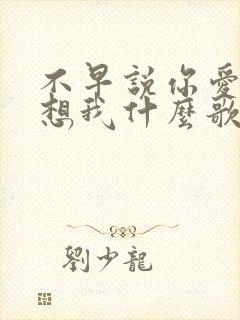 不早説你愛
想我什麼歌
劉少龍